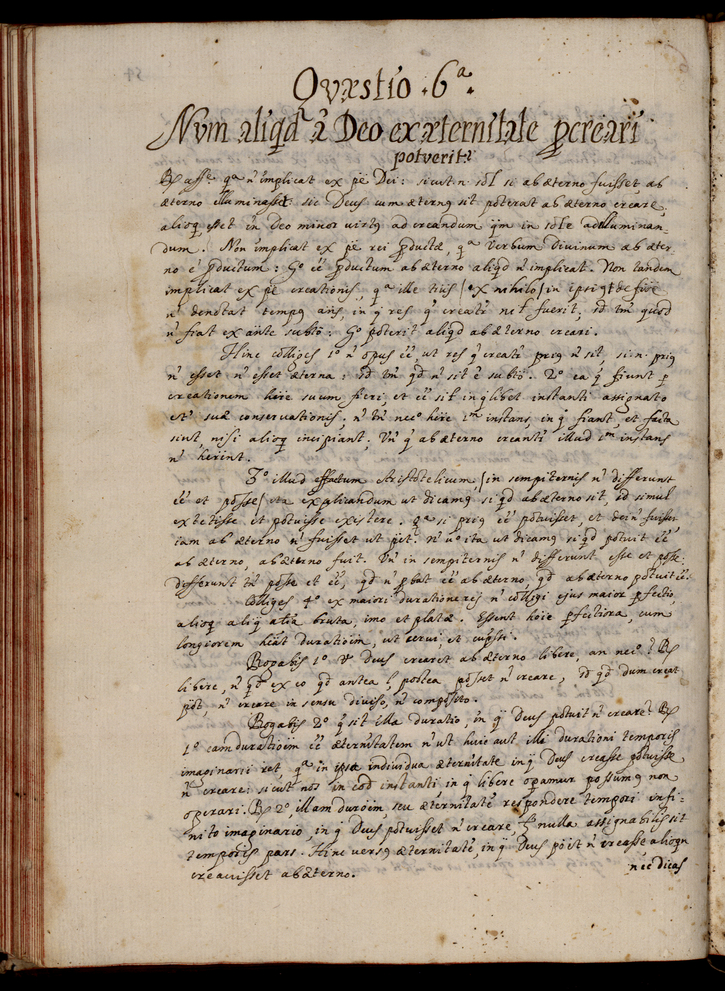 Qvæstio .6ª.
Nvm aliqd à Deo ex æternitate pcreari
potverit?
Rs affe. qª n' implicat ex pe Dei: sicut n. sol si ab æterno fuisset, ab
æterno illuminasset: sic Deus cum æternq sit poterat ab æterno creare,
alioq, esset in Deo minor virtq ad creandum qm in sole ad illuminan-
dum. Non implicat ex pe rei pductæ, qª Verbum Divinum ab æter
no e' pductum: Gº ee' pductum ab æterno aliqd n' implicat. Non tandem
implicat ex pe creationis, qª ille
n' denotat tempq ans, in q res q creatr fuerit, id tm quod
n' fiat ex ante subto: Gº poterit aliqd ab æterno creari.
Hinc colliges 1º n' opus ee', ut res q creatr priq n' sit, si n. priq
n' esset n' esset æterna: id tm qd n' sit e subto. 2º ea q fiunt p
creationem hre suum fieri, et ee' sit in qlibet instanti assignato
et suæ conservationis; n' tm necº hre 1m instans, in q fiant, et facta
sint, nisi alioq incipiant. Un q ab æterno creantr illud 1m instans
n' herint.
3º illud effatum Aristotelicum (in sempiternis n' differunt
ee' et posse) ita explicandum ut dicamq si qd ab æterno sit, id simul
extitisse et potuisse existere. qª si priq ee' potuisset, et dein' fuisset
iam ab æterno n' fuisset ut pet. n' vº ita ut dicamq si qd potuit ee'
ab æterno, ab æterno fuit. Un in sempiternis n' differunt esse et posse:
differunt tn posse et ee', qd n' pbat ee' ab æterno, qd ab æterno potuit ee'.
Colliges 4º ex maiori duratione rei n' colligi ejus maior pfectio,
alioq aliq alia bruta, imo et platæ. Essent hoie pfectiora, cum
longiorem heat duratioim, ut cervi, et
Rogabis 1º Deus crearet ab æterno libere, an necº? Rs
libere, n' qd ex eo qd antea l, postea posset n' creare, id qd dum creat
pot, n' creare in sensu diviso, n' composito.
Rogabis 2º q sit illa duratio, in q Deus potuit n' creare? Rs
1º eam duratioim ee' æternitatem n' ut huic aut illi durationi temporis
imaginarii ret qª in ipsa individua æternitate in q Deus creasse potuisse
n' crearei sicut nos in eod instanti, in q libere opamur possumq non
operari. Rs 2º, illam duroim, seu æternitate' respondere tempori infi-
nito imaginario, in q Deus potuisset n' creare, nulla assignabilis sit
temporis pars. Hinc versq æternitate', in q Deus pöit n' creasse alioqn
creavisset ab æterno.
nec dicas